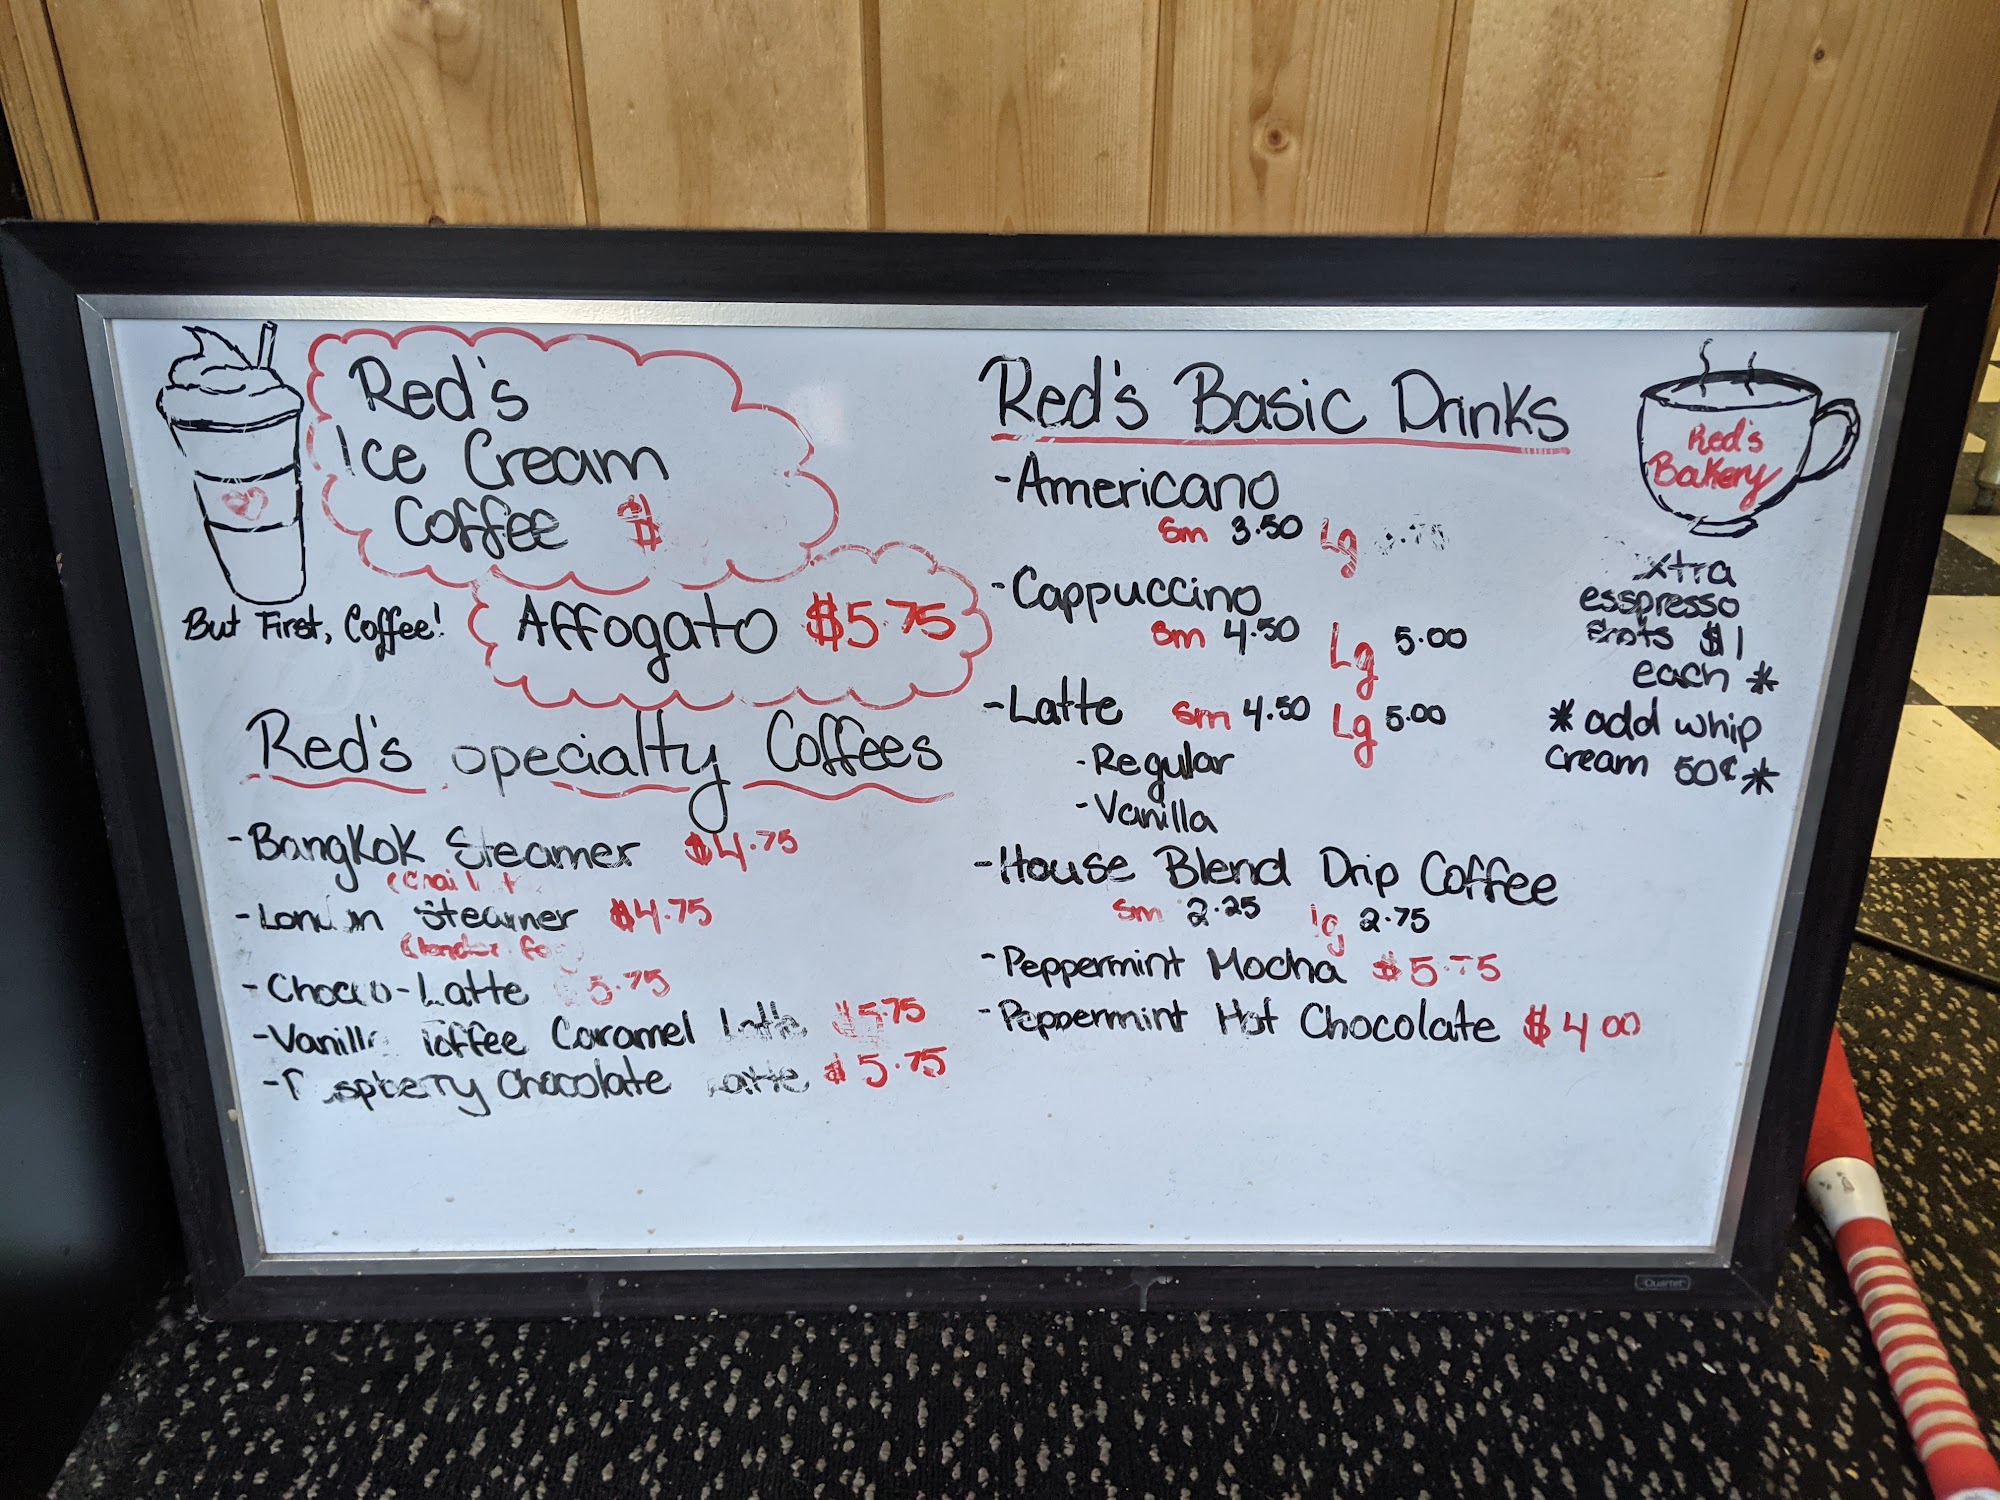 Red's
Ice Cream
Coffee $
But First, Coffee!
Affogato $5.75
Red's specialty Coffees
-Bangkok Steamer $4.75
-London Steamer $4.75
-Choco-Latte 5.75
-Vanilla Toffee Caramel Latte $5.75
-Raspberry Chocolate Latte $5.75
Red's Basic Drinks
-Americano
Sm 3.50 Lg
-Cappuccino
Sm 4.50 Lg 5.00
-Latte Sm 4.50 Lg 5.00
-Regular
-Vanilla
-House Blend Drip Coffee
Sm 2.25 lg 2.75
-Peppermint Mocha $5.75
-Peppermint Hot Chocolate $4.00
Red's
Bakery
xtra
esspresso
shots $1
each *
*add whip
cream 50¢*
Quartet